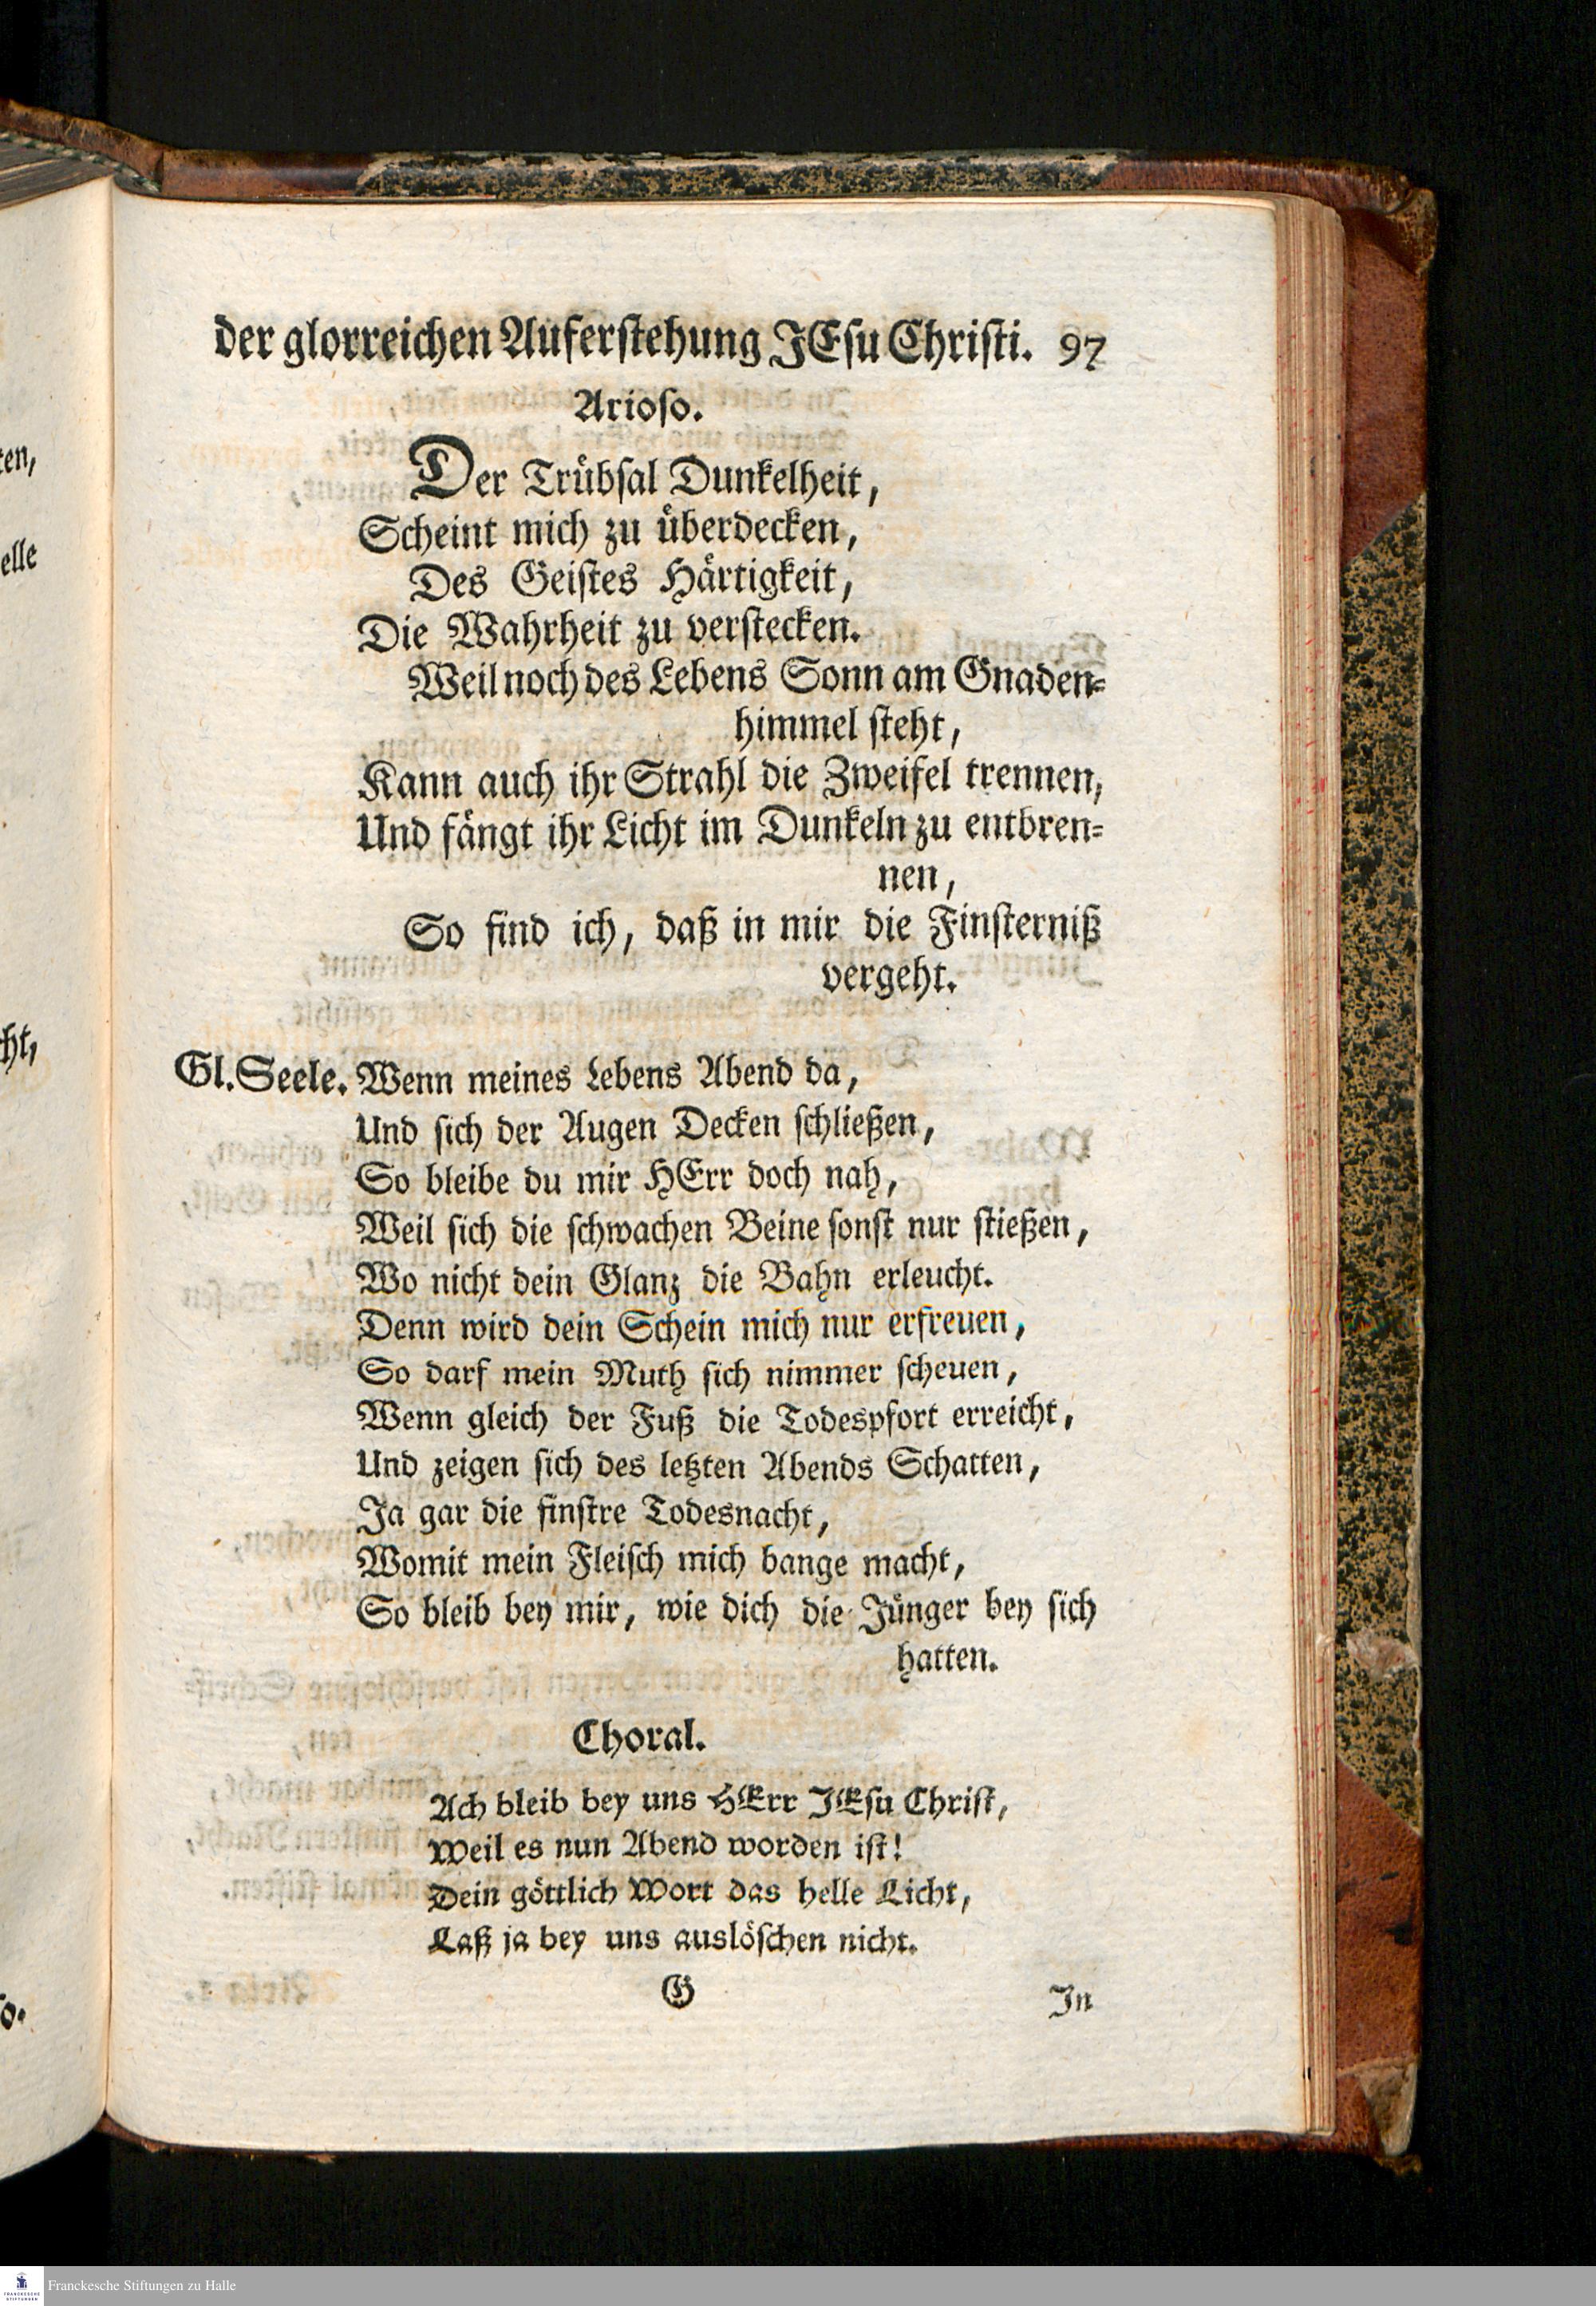 der glorreichen Auferstehung JEsu Christi. 97
Arioso.
Der Trübsal Dunkelheit,
Scheint mich zu überdecken,
Des Geistes Härtigkeit,
Die Wahrheit zu verstecken.
Weil noch des Lebens Sonn am Gnaden-
himmel steht,
Kann auch ihr Strahl die Zweifel trennen,
Und fängt ihr Licht im Dunkeln zu entbren-
nen,
So find ich, daß in mir die Finsterniß
vergeht.
Gl. Seele. Wenn meines Lebens Abend da,
Und sich der Augen Decken schließen,
So bleibe du mir HErr doch nah,
Weil sich die schwachen Beine sonst nur stießen,
Wo nicht dein Glanz die Bahn erleucht.
Denn wird dein Schein mich nur erfreuen,
So darf mein Muth sich nimmer scheuen,
Wenn gleich der Fuß die Todespfort erreicht,
Und zeigen sich des letzten Abends Schatten,
Ja gar die finstre Todesnacht,
Womit mein Fleisch mich bange macht,
So bleib bey mir, wie dich die Jünger bey sich
hatten.
Choral.
Ach bleib bey uns HErr JEsu Christ,
Weil es nun Abend worden ist!
Dein göttlich Wort das helle Licht,
Laß ja bey uns auslöschen nicht.
G In
ten,
elle
cht,
so.
FRANCKESCHE
STIFTUNGEN
Franckesche Stiftungen zu Halle